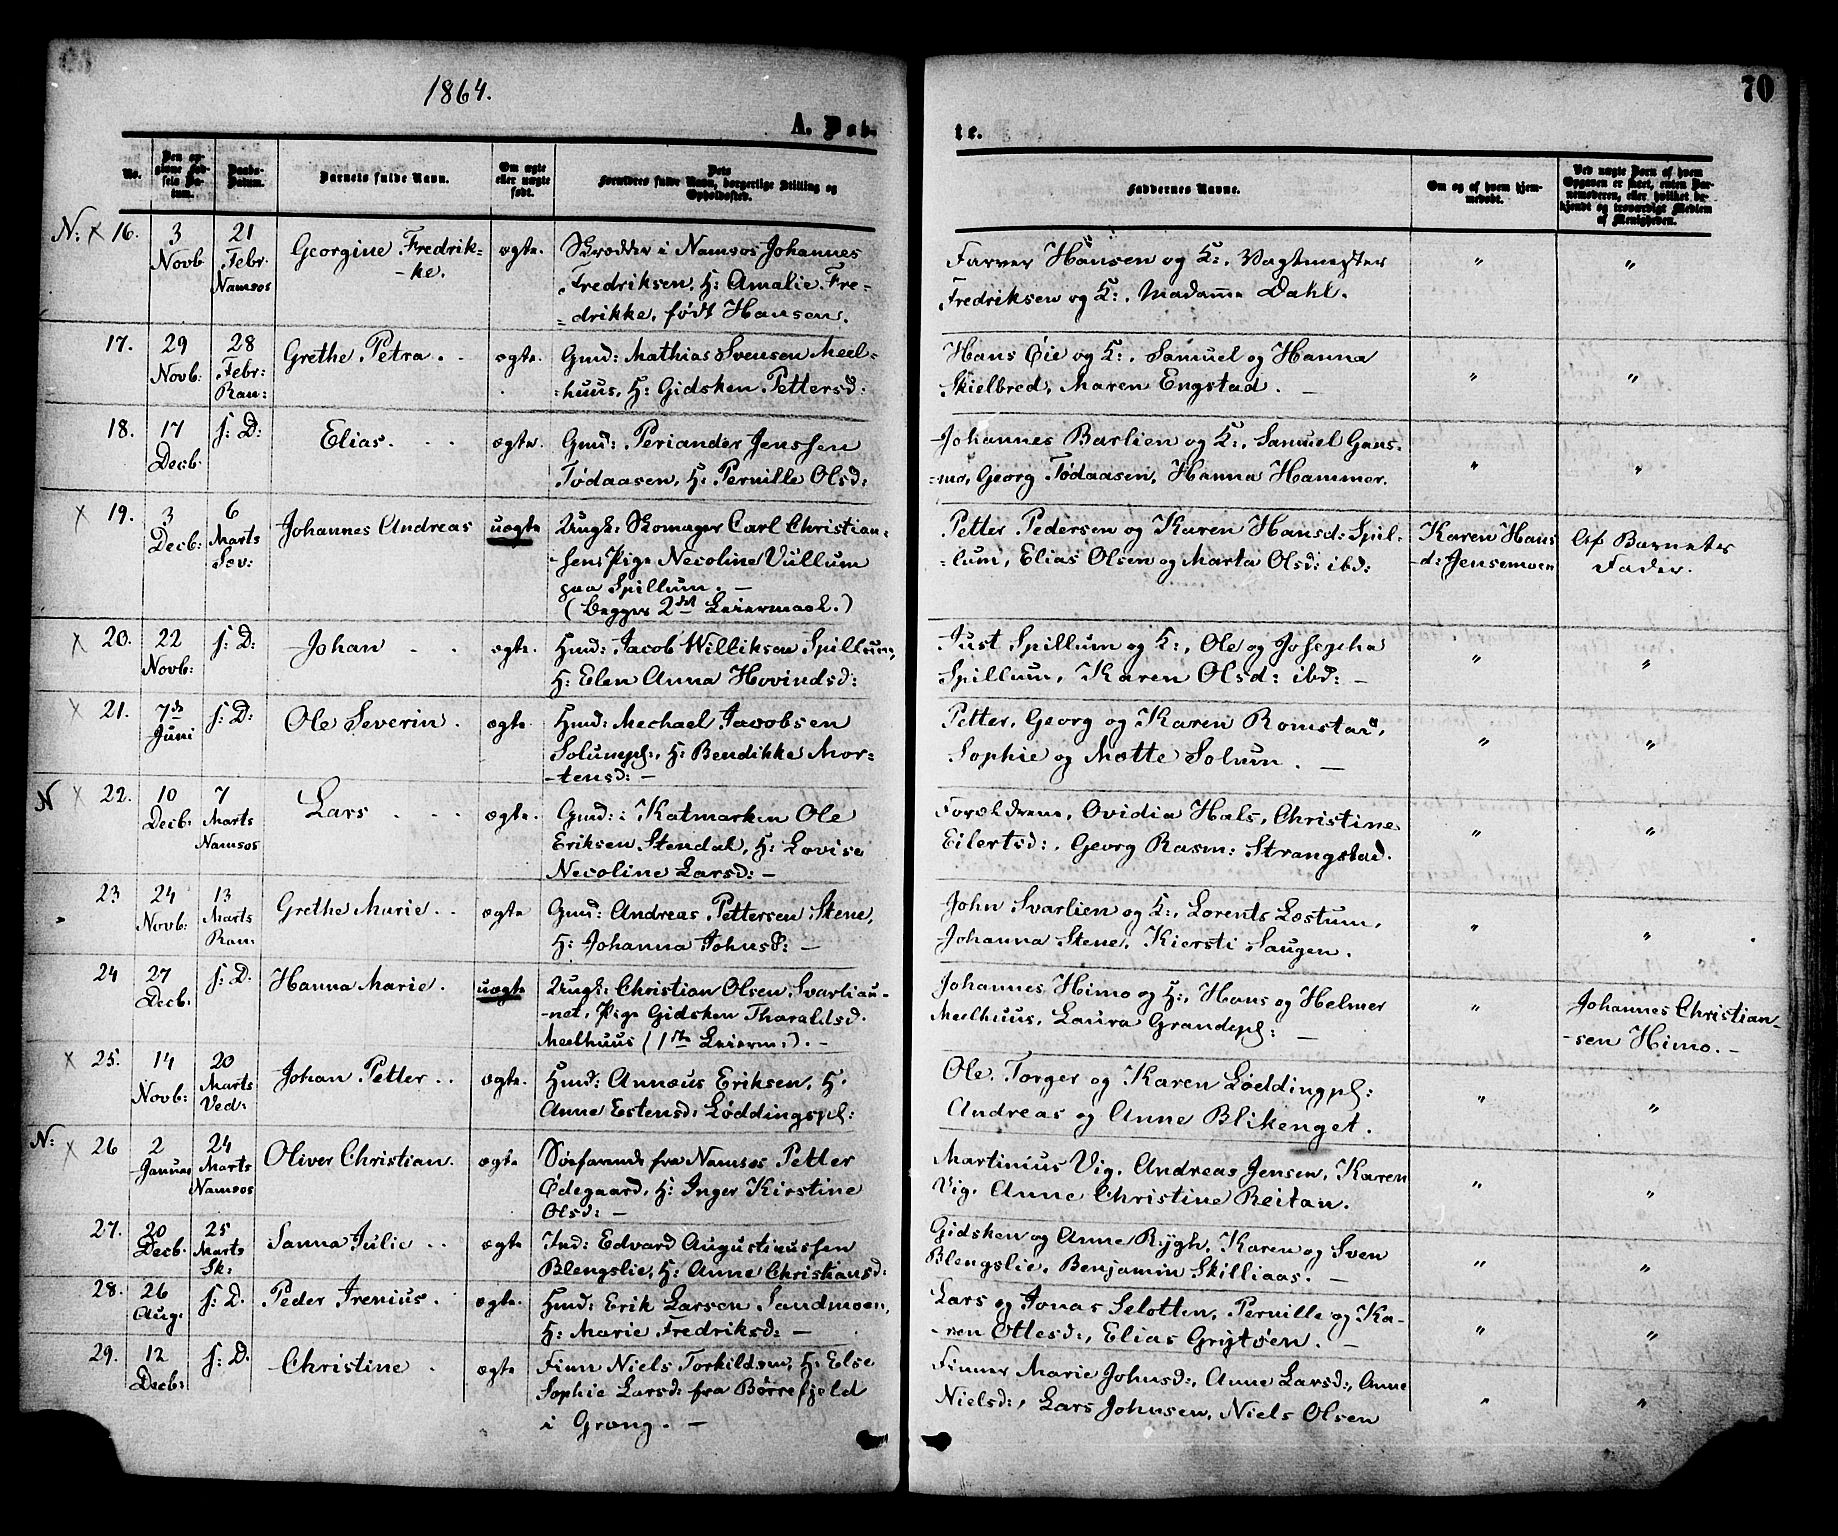 1864.
70
A. Døb-
te.
No.
Den op-
givne Fød-
sels Da-
tum.
Daabs-
Datum.
Barnets fulde Navn.
Om ægte
eller uægte
født.
Dets
Forældres fulde Navn, borgerlige Stilling og
Opholdssted.
Faddernes Navne.
Om og af hvem hjem-
medøbt.
Ved uægte Børn af hvem
Opgaven er skeet, enten Bar-
nemoderen, eller hvilket be-
kjendt og troværdigt Medlem
af Menigheden.
N: x 16.
3
Novb
21
Febr.
Namsos
Georgine Fredrik-
-ke.
ægte.
Skrædder i Namsos Johannes
Fredriksen, H: Amalie Fre-
=drikke, født Hansen.
Farver Hansen og K:, Vagtmester
Fredriksen og K:, Madame Dahl.
" "
17.
29
Novb:
28
Febr:
Ran:
Grethe Petra.
ægte.
Gmd: Mathias Svensen Meel-
=huus, H: Gidsken Pettersd:
Hans Øie og K:, Samuel og Hanna
Skielbred, Maren Engstad.
" "
18.
17
Decb.
s: D:
Elias.
ægte.
Gmd: Periander Jenssen
Tødaasen, H: Pernille Olsd:
Johannes Barlien og K:, Samuel Gans-
=mo, Georg Tødaasen, Hanna Hammer.
" "
x 19.
3
Decb:
6
Marts
Sæv:
Johannes Andreas
uægte
Ungk: Skomager Carl Christian-
-sen, Pige Necoline Vüllum
paa Spillum. -
(begges 2det Leiermaal.)
Petter Pedersen og Karen Hansd: Spil-
=lum, Elias Olsen og Marta Olsd: ibd:
Karen Hans
-d: Jensemoen
Af Barnets
Fader.
x 20.
22
Novb:
s: D:
Johan
ægte.
Hmd: Jacob Williksen Spillum,
H: Elen Anna Hovindsd:
Just Spillum og K:, Ole og Josepha
Spillum, Karen Olsd: ibd: -
" "
x 21.
7de
Juni
s: D:
Ole Severin.
ægte.
Hmd: Mechael Jacobsen
Solumpl:, H: Bendikke Mor-
-tensd: -
Petter, Georg og Karen Romstad,
Sophie og Mette Solum. -
" "
N x 22.
10
Decb:
7
Marts
Namsos
Lars
ægte.
Gmd: i Katmarken Ole
Eriksen Stendal, H: Lovise
Necoline Larsd: -
Forældrene, Ovidia Hals, Christine
Eilertsd:, Georg Rasm: Strangstad.
" "
23
24
Novb:
13
Marts
Ran:
Grethe Marie.
ægte
Gmd: Andreas Pettersen Stene,
H: Johanna Johnsd: -
John Svarlien og K:, Lorents Lostum,
Johanna Stene, Kiersti Saugen.
" "
24
27
Decb.
s: D:
Hanna Marie.
uægte
Ungk: Christian Olsen Svarliau-
-net, Pige Gidsken Tharaldsd.
Meelhuus (1ste Leierm:). -
Johannes Himo og H:, Hans og Helmer
Meelhuus, Laura Grandepl: -
"
Johannes Christian-
-sen Himo. -
x 25.
14
Novb:
20
Marts
Ved:
Johan Petter.
ægte.
Hmd: Annæus Eriksen, H.
Anne Estensd: Løddingspl:
Ole, Torger og Karen Løddingpl:
Andreas og Anne Blikenget.
" "
N: x 26
2
Januar
24
Marts
Namsos
Oliver Christian.
ægte
Søefarende fra Namsos Petter
Ødegaard, H: Inger Kirstine
Olsd: -
Martinius Vig, Andreas Jensen, Karen
Vig, Anne Christine Reitan.
" "
27.
20
Decb.
25
Marts
Sk:
Sanna Julie
ægte
Ind: Edvard Augustinussen
Blengslie, H: Anne Christiansd:
Gidsken og Anne Rygh, Karen og Sven
Blengslie, Benjamin Skilliaas. -
" "
28.
26
Aug:
s: D.
Peder Irenius.
ægte.
Hmd: Erik Larsen Sandmoen,
H: Marie Fredriksd: -
Lars og Jonas Selottten, Pernille og Ka-
-ren Ottesd:, Elias Grytøen. -
" "
29.
12
Decb:
s: D.
Christine
ægte
Finn Niels Torkildsen, H: Else
Sophie Larsd: fra Børrefjeld
i Grong. -
Finner Marie Johnsd:, Anne Larsd:, Anne
Nielsd:, Lars Johnsen, Niels Olsen
" "